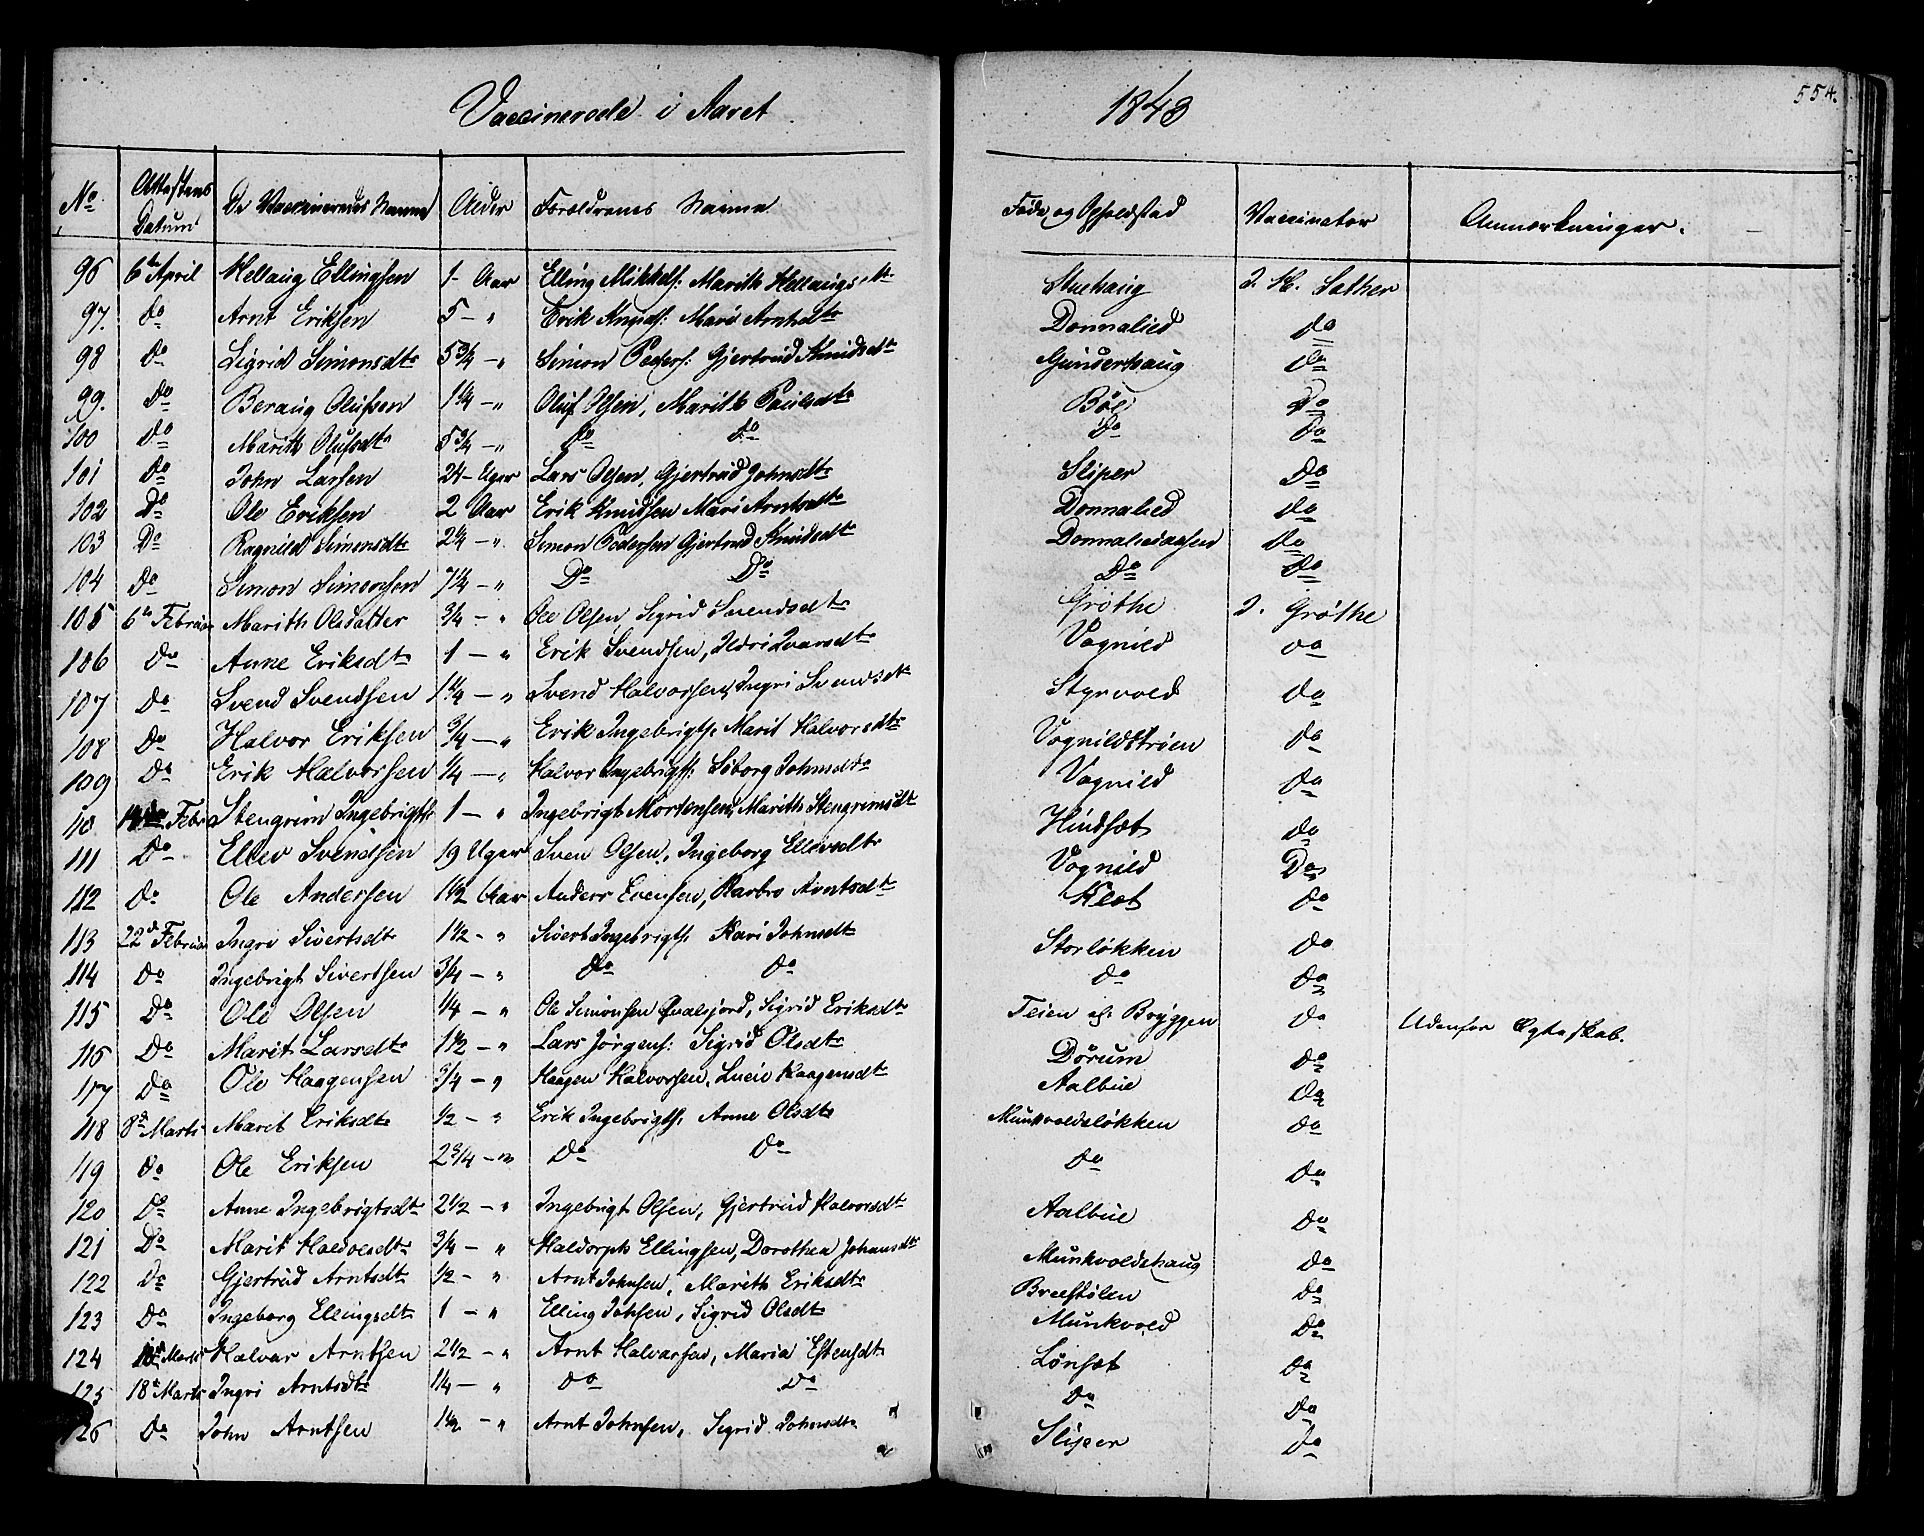 Vaccinerede i Aaret 1843
554.
No Attestens Datum De Vaccineredes Navne Alder Forældrenes Navne Føde og Opholdsted Vaccinator Anmærkninger.
96 6te April Hellaug Ellingsen 1 - Aar Elling Mikkels: Marith Hellaugsdtr Stuehaug J. H. Sæther
97. do Arnt Eriksen 5 - " Erik Knuds: Mari Arntsdtr Donnalied do
98 do Sigrid Simonsdtr 5 3/4 - " Simon Peders: Gjertrud Knudsdtr Gunderhaug do
99. do Beraug Olufsen 1 1/4 - " Oluf Olsen, Marith Paulsdtr Böe do
100 do Marith Olufsdtr 5 3/4 - " do do do do
101 do John Larsen 24 - Uger Lars Olsen, Gjertrud Johnsdtr Sliper do
102 Do Ole Eriksen 2 Aar Erik Knudsen Mari Arntsdtr Donnalied do
103 Do Ragnild Simonsdtr 2 1/4 - " Simon Pedersen Gjertrud Knudsdtr Donnaliedaasen do
104 do Simon Simonsen 7 1/4 - " Do Do Do do
105 6te Februar Marith Olsdatter 3/4 - " Ole Olsen, Sigrid Svendsdtr Gröthe J. Gröthe
106 Do Anne Eriksdtr 1 - " Erik Svendsen, Ildri Ivarsdtr Vognild do
107 Do Svend Svendsen 1 1/4 - " Svend Halvorsen, Ingri Svendsdtr Styrvold do
108 Do Halvor Eriksen 3/4 - " Erik Ingebrigts. Marit Halvorsdtr Vognildströen do
109 Do Erik Halvorsen 1/4 - " Halvor Ingebrigts: Siborg Johnsdtr Vognild do
110 Febr Stengrim Ingebrigts. 1 - " Ingebrigt Mortensen, Marith Stengrimsdtr Hindset do
111 Do Ellev Svendsen 19 Uger Sven Olsen, Ingeborg Ellevsdtr Vognild Do
112 Do Ole Andersen 1 1/2 Aar Anders Evensen, Barbro Arntsdtr Klet do
113 22de Februar Ingri Sivertsdtr 1 1/2 - " Sivert Ingebrigts. Kari Johnsdtr Storløkken do
114 do Ingebrigt Sivertsen 3/4 - " do do do do
115 Do Ole Olsen 1/4 - " Ole Simonsen Qualsjord, Sigrid Eriksdtr Teien af: Bryggen do Udenfor Ægteskab.
116 Do Marit Larsdtr 1 1/2 - " Lars Jörgens: Sigrid Olsdtr Dörum do
117 Do Ole Haagensen 3/4 - " Haagen Halvorsen, Lucie Haagensdtr Aalbue do
118 8de Marts Marit Eriksdtr 1/2 - " Erik Ingebrigts. Anne Olsdtr Munkvoldsløkken do
119 do Ole Eriksen 2 3/4 - " Do do do do
120 Do Anne Ingebrigtsdtr 2 1/2 - " Ingebrigt Olsen, Gjertrud Halvorsdtr Aalbue do
121 Do Marit Haldorsdtr 3/4 - " Haldorph Ellingsen, Dorothea Johansdtr Munkvoldshaug do
122 Do Gjertrud Arntsdtr 1/2 - " Arnt Johnsen, Marith Eriksdtr Breestølen do
123 Do Ingeborg Ellingsdtr 1 - " Elling Johsen, Sigrid Olsdtr Munkvold do
124 Marts Halvar Arntsen 2 1/2 - " Arnt Halvarsen, Maria Estensdtr Lönset do
125 18de Marts Ingri Arntsdtr 1/4 - " do do do do
126 Do John Arntsen 1 1/2 - " Arnt Johnsen, Sigrid Johnsdtr Sliper do